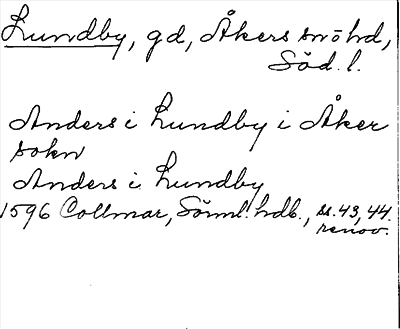 Lundby, gd, Åkers snöhd,
Söd. l.
Anders i Lundby i Åker
sokn
Anders i Lundby
1596 Collmar, Sörml. hdb., ss. 43, 44.
renov.